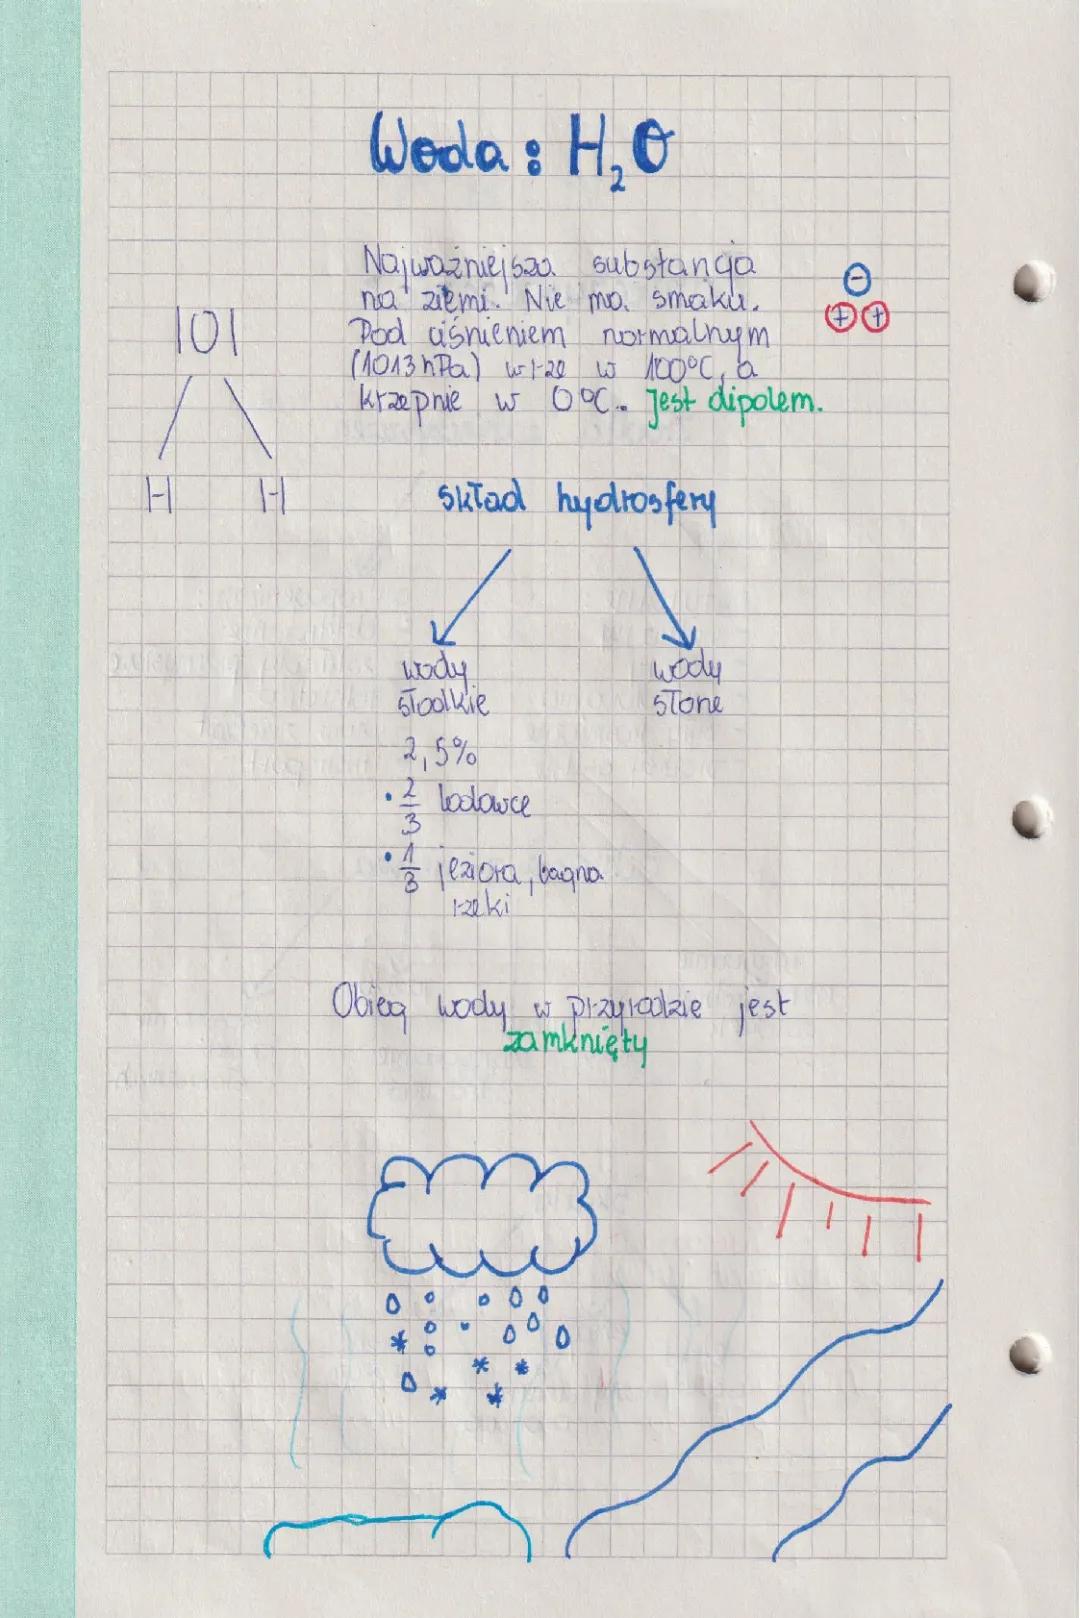 Woda: H₂O
Najważniejsza substancja
na ziemi. Nie ma smaku.
Pod ciśnieniem normalnym
(1013 hPa) wrze w 100°C, a
krzepnie w 0°C. Jest dipolem.
-
+ +
|O|
H H
skład hydrosfery
wody
słodkie
wody
słone
2,5%
• 2/3 lodowce
• 1/3 jeziora, bagna
rzeki
Obieg wody w przyrodzie jest
zamknięty